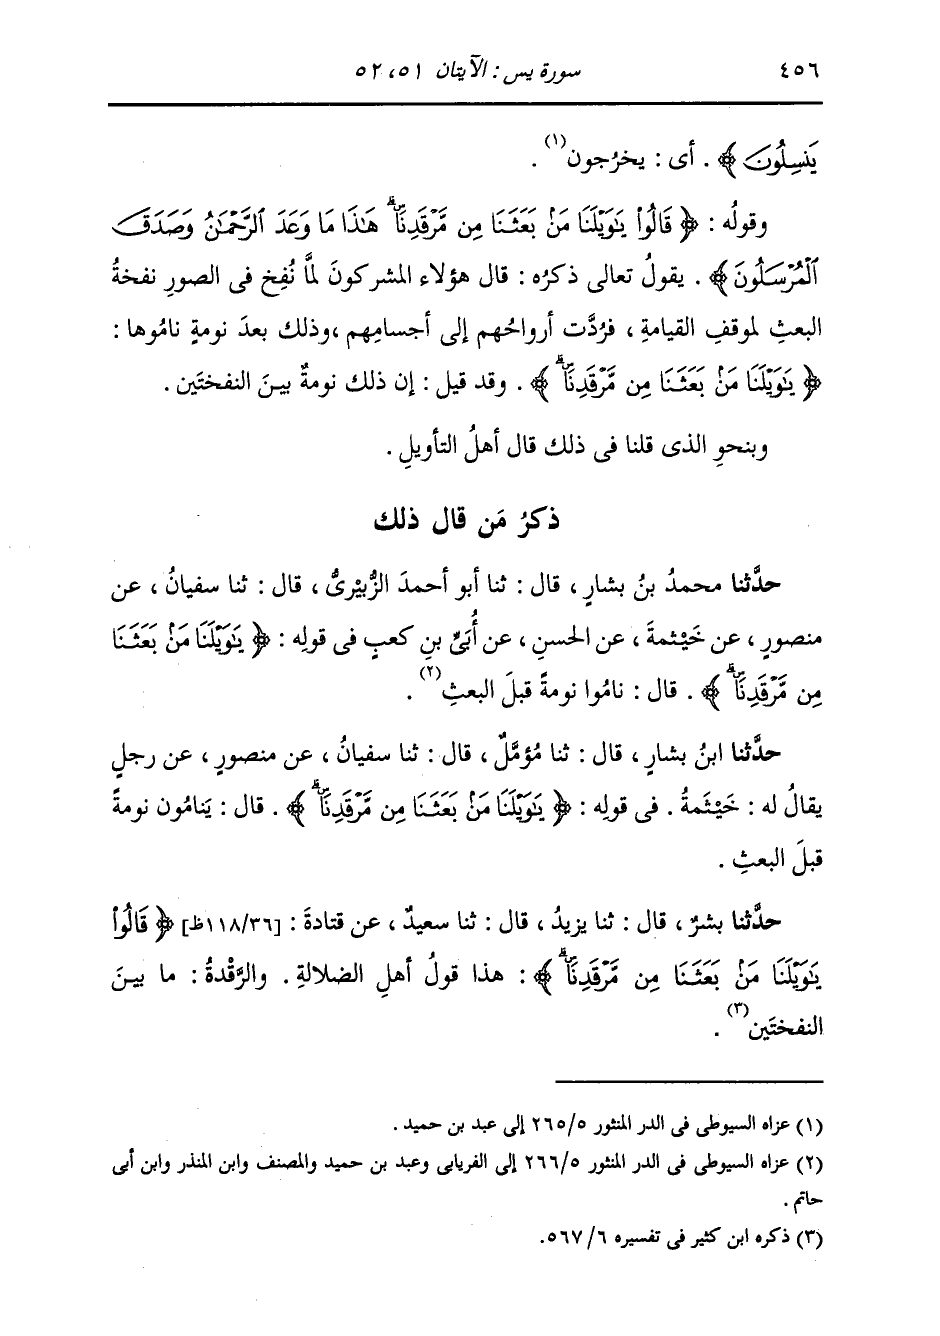 ٤٥٦ سورة يس : الآيتان ٥١، ٥٢
يَنسِلُونَ ﴾ . أى : يخرُجون(١) .
وقولُه : ﴿ قَالُوا۟ يَٰوَيْلَنَا مَنۢ بَعَثَنَا مِن مَّرْقَدِنَاۗ هَٰذَا مَا وَعَدَ ٱلرَّحْمَٰنُ وَصَدَقَ
ٱلْمُرْسَلُونَ ﴾ . يقولُ تعالى ذكرُه : قال هؤلاء المشركونَ لمَّا نُفِخ فى الصورِ نفخةُ
البعثِ لموقفِ القيامةِ ، فرُدَّت أرواحُهم إلى أجسامِهم ،وذلك بعدَ نومةٍ نامُوها :
﴿ يَٰوَيْلَنَا مَنۢ بَعَثَنَا مِن مَّرْقَدِنَاۗ ﴾ . وقد قيل : إن ذلك نومةٌ بينَ النفختَين .
وبنحوِ الذى قلنا فى ذلك قال أهلُ التأويلِ .
ذكرُ مَن قال ذلك
حدَّثنا محمدُ بنُ بشارٍ ، قال : ثنا أبو أحمدَ الزُّبيْرىُّ ، قال : ثنا سفيانُ ، عن
منصورٍ ، عن خَيْثمةَ ، عن الحسنِ ، عن أُبَىِّ بنِ كعبٍ فى قولِه : ﴿ يَٰوَيْلَنَا مَنۢ بَعَثَنَا
مِن مَّرْقَدِنَاۗ ﴾ . قال : نامُوا نومةً قبلَ البعثِ(٢) .
حدَّثنا ابنُ بشارٍ ، قال : ثنا مُؤمَّلٌ ، قال : ثنا سفيانُ ، عن منصورٍ ، عن رجلٍ
يقالُ له : خَيْثَمةُ . فى قولِه : ﴿ يَٰوَيْلَنَا مَنۢ بَعَثَنَا مِن مَّرْقَدِنَاۗ ﴾ . قال : يَنامُون نومةً
قبلَ البعثِ .
حدَّثنا بشرٌ ، قال : ثنا يزيدُ ، قال : ثنا سعيدٌ ، عن قتادةَ : [١١٨/٣٦ظ] ﴿ قَالُوا۟
يَٰوَيْلَنَا مَنۢ بَعَثَنَا مِن مَّرْقَدِنَاۗ ﴾ : هذا قولُ أهلِ الضلالةِ . والرَّقْدةُ : ما بينَ
النفختَين(٣) .
(١) عزاه السيوطى فى الدر المنثور ٢٦٥/٥ إلى عبد بن حميد .
(٢) عزاه السيوطى فى الدر المنثور ٢٦٦/٥ إلى الفريابى وعبد بن حميد والمصنف وابن المنذر وابن أبى
حاتم .
(٣) ذكره ابن كثير فى تفسيره ٥٦٧/٦.